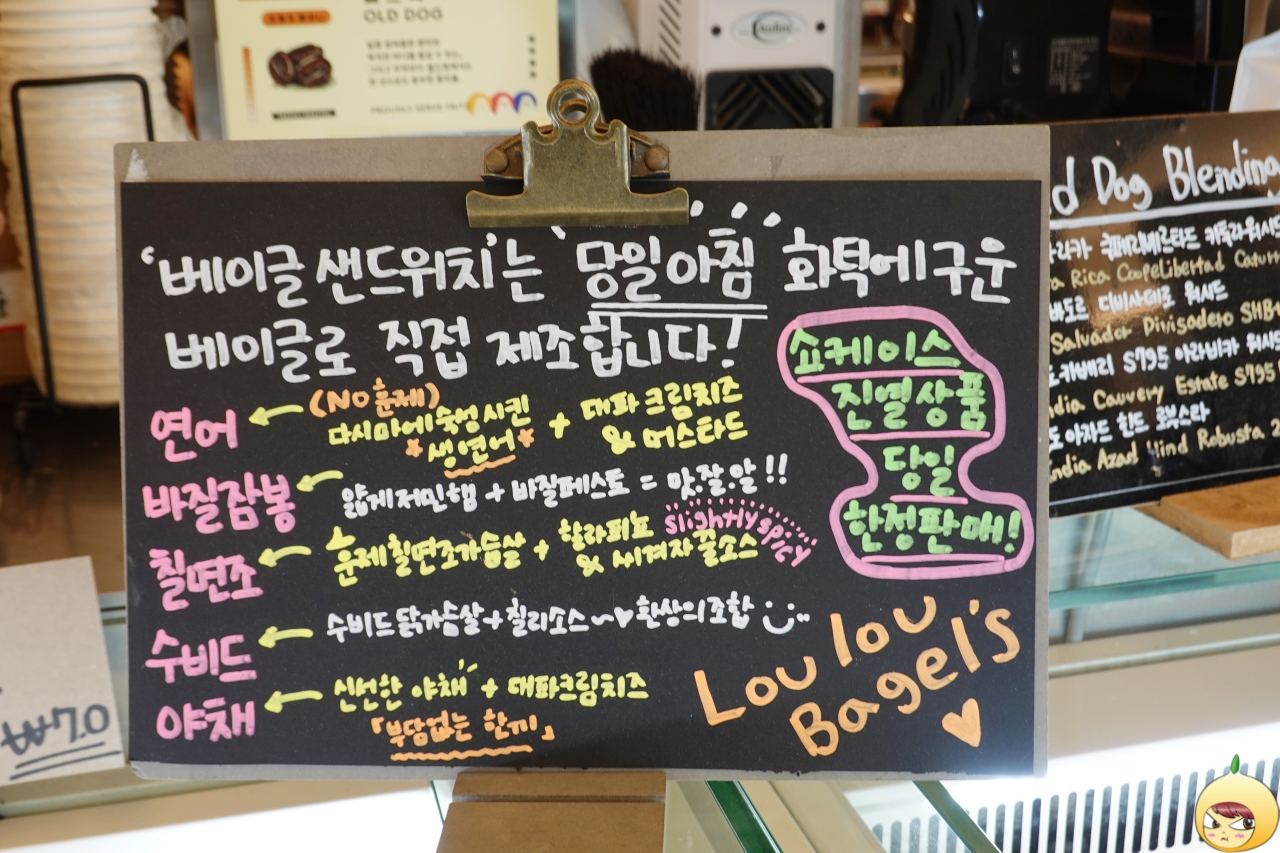 OLD DOG
PROUDLY SERVE
'베이글 샌드위치'는 '당일아침' 화덕에 구운
베이글로 직접 제조합니다!
연어 ← (NO 훈제)
다시마에 숙성 시킨
*생연어* + 대파 크림치즈
& 머스타드
바질잠봉 ← 얇게저민햄 + 바질페스토 = 맛.잘.알!!
칠면조 ← 훈제칠면조가슴살 + 할라피뇨
& 씨겨자꿀소스
slightly spicy
수비드 ← 수비드 닭가슴살 + 칠리소스 ~♥ 환상의조합
야채 ← 신선한 야채 + 대파크림치즈
「부담없는 한끼」
쇼케이스
진열상품
당일
한정판매!
Lou lou
Bagel's
₩7.0
d Dog Blending
Rica CoopeLibertad
Salvador Divisadero SHB
S795 아라비카
ndia Cauvery Estate S795
아자드 힌드 로부스타
India Azad Hind Robusta